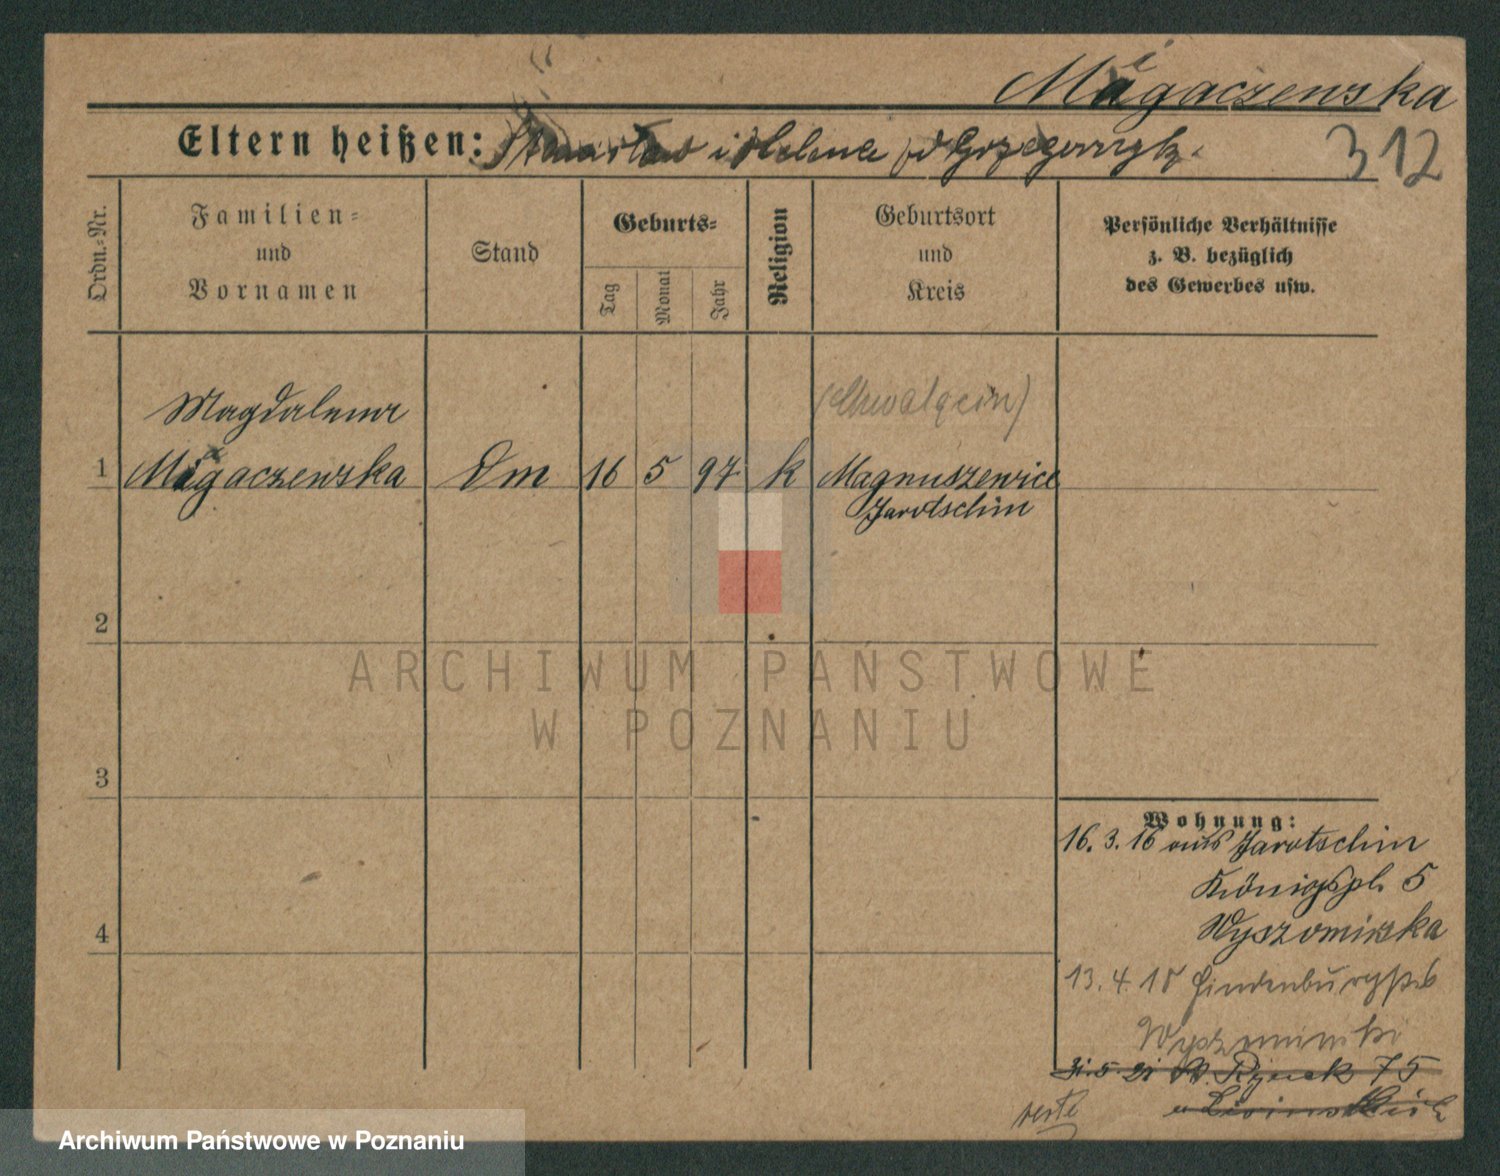 Magaczewska
Eltern heißen: Stanisław i Helena
312
Ordn.=Nr.
Familien=
und
Vornamen
Stand
Geburts=
Tag
Monat
Jahr
Religion
Geburtsort
und
Kreis
Persönliche Verhältnisse
z. B. bezüglich
des Gewerbes usw.
Magdalena
1 Magaczewska Dm 16 5 97 k Magnuszewice
Jarotschin
2
3
4
ARCHIWUM PAŃSTWOWE
W POZNANIU
Wohnung:
16. 3. 16 aus Jarotschin
Königspl. 5
Wyszomirska
13. 4. 18
75
Archiwum Państwowe w Poznaniu